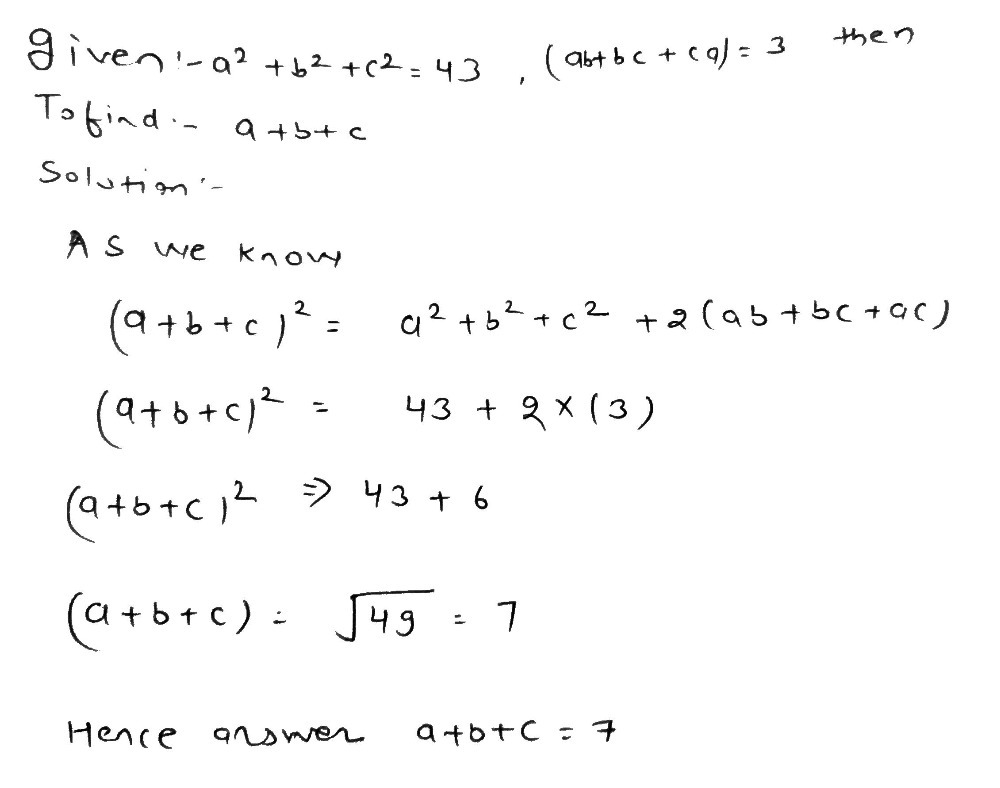 given:- a² + b² + c² = 43 , (ab+bc + ca) = 3 then
To find :- a + b + c
Solution :-
As we know
(a+b+c)² = a² + b² + c² + 2(ab + bc + ac)
(a+b+c)² = 43 + 2 × (3)
(a+b+c)² ⇒ 43 + 6
(a+b+c) = √49 = 7
Hence answer a+b+c = 7